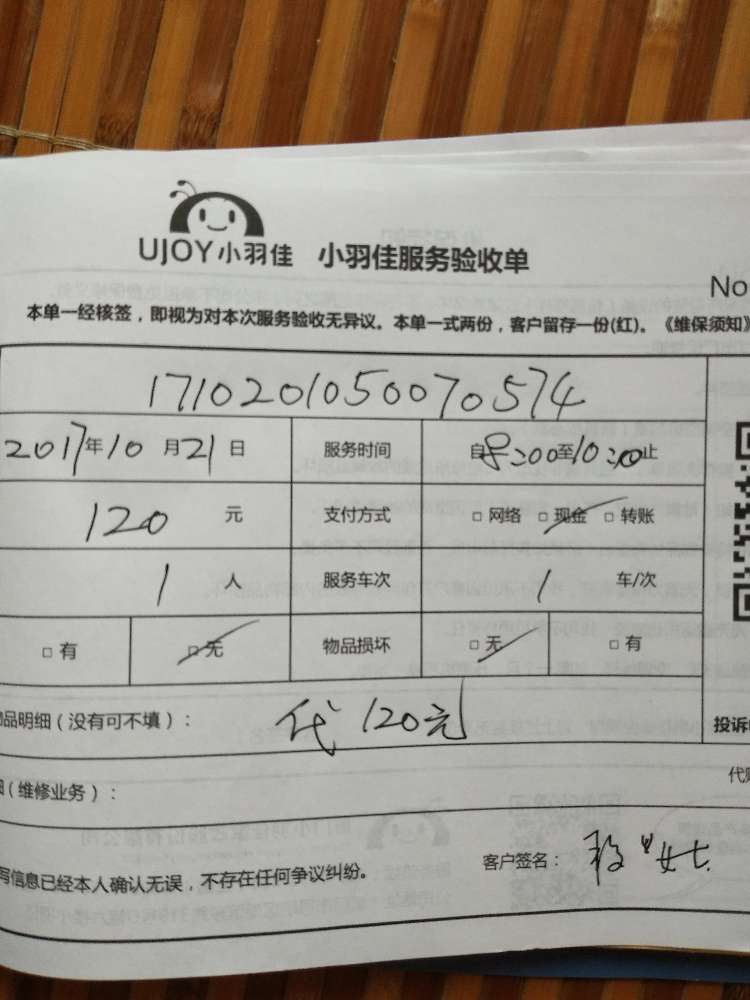 UJOY小羽佳 小羽佳服务验收单
No
本单一经核签，即视为对本次服务验收无异议。本单一式两份，客户留存一份(红)。《维保须知》
1710201050070574
2017年10月21日 服务时间 自8:00至10:00止
120元 支付方式 □网络 □现金 □转账
1人 服务车次 1车/次
□有 □无 物品损坏 □无 □有
品明细（没有可不填）： 代120元
投诉
（维修业务）：
代
写信息已经本人确认无误，不存在任何争议纠纷。 客户签名： 女士